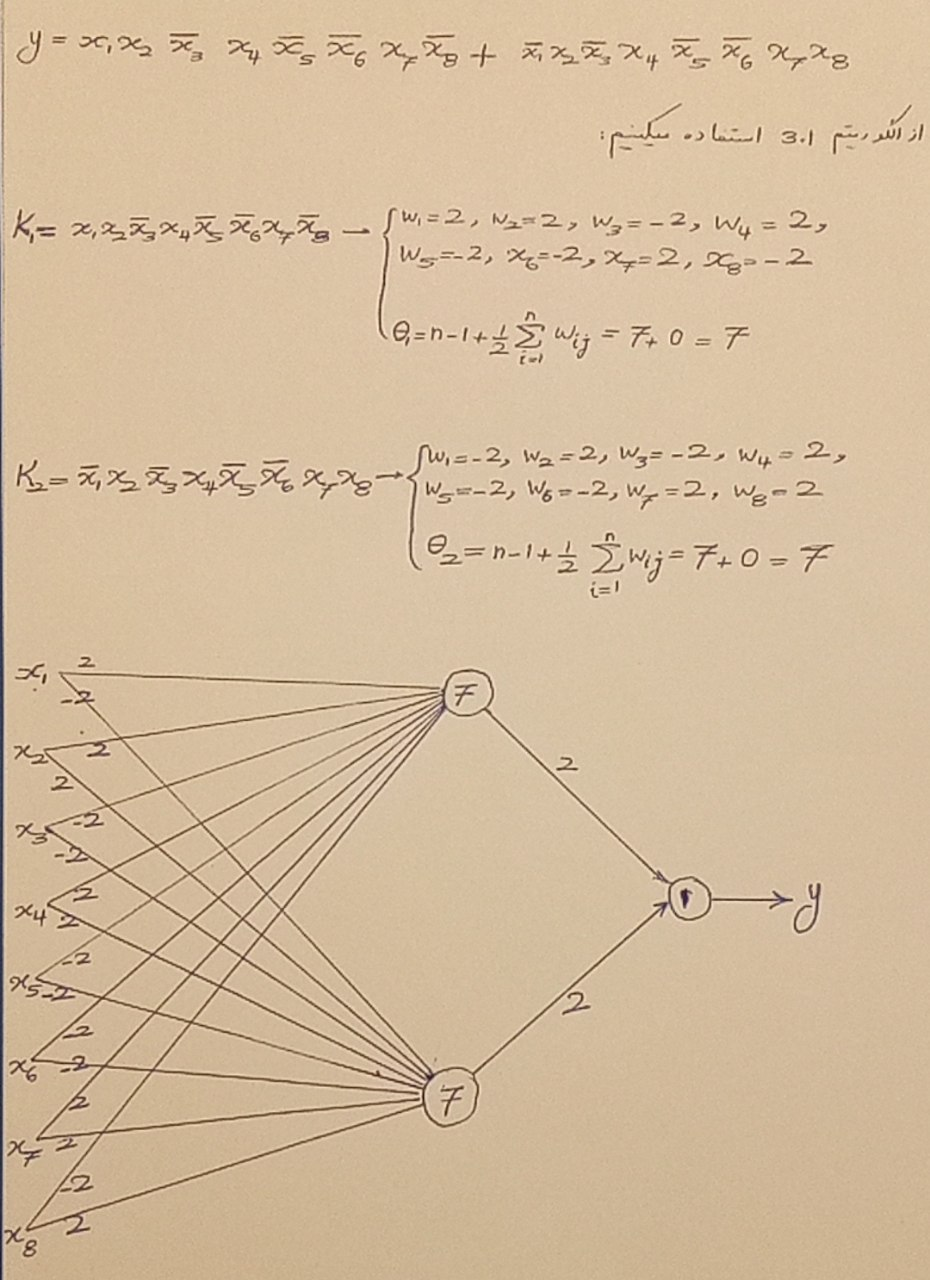 y = x₁x₂ x̄₃ x₄ x̄₅ x̄₆ x₇ x̄₈ + x̄₁x₂x̄₃x₄ x̄₅ x̄₆ x₇x₈
از الگوریتم 3.1 استفاده میکنیم:
K₁= x₁x₂x̄₃x₄x̄₅x̄₆x₇x̄₈ → { w₁=2, w₂=2, w₃=-2, w₄=2,
w₅=-2, x₆=-2, x₇=2, x₈=-2
θ₁=n-1+½ Σⁿᵢ₌₁ wᵢⱼ = 7+0 = 7
K₂= x̄₁x₂x̄₃x₄x̄₅x̄₆x₇x₈ → { w₁=-2, w₂=2, w₃=-2, w₄=2,
w₅=-2, w₆=-2, w₇=2, w₈=2
θ₂=n-1+½ Σⁿᵢ₌₁ wᵢⱼ = 7+0 = 7
x₁ 2
-2
7
x₂ 2
2
2
x₃ -2
-2
x₄ 2
2
1 y
x₅ -2
-2
2
x₆ -2
-2
7
2
x₇ 2
-2
x₈ 2